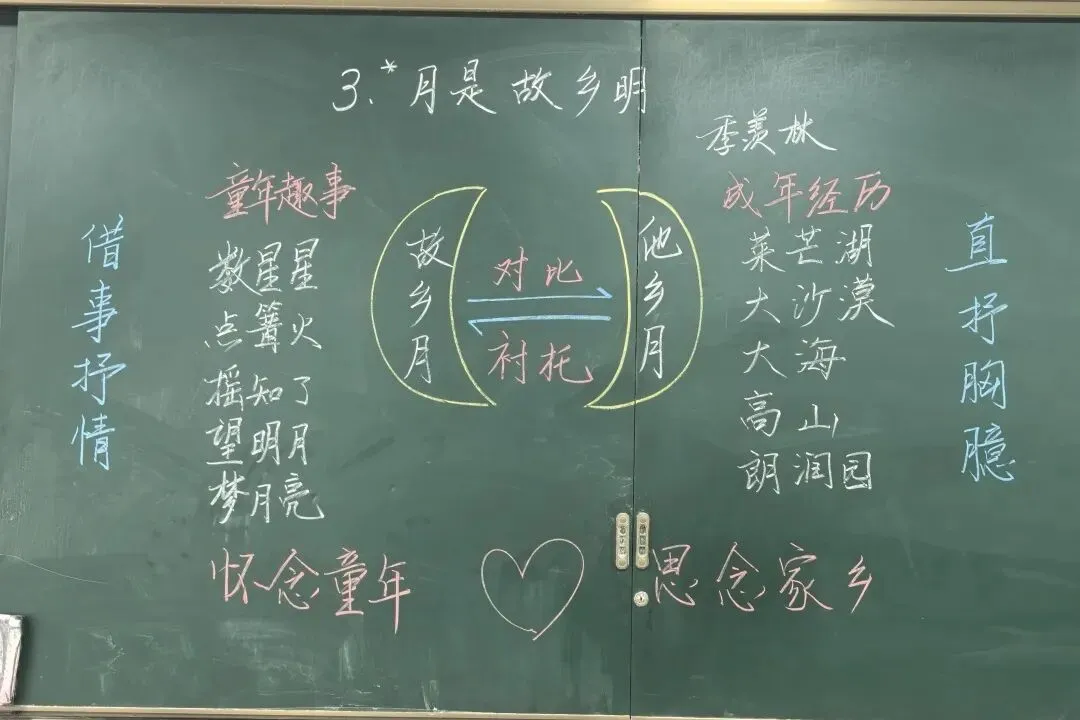 3.*月是故乡明
季羡林
借事抒情
童年趣事
数星星
点篝火
摇知了
望明月
梦月亮
故乡月
对比
衬托
他乡月
成年经历
莱芒湖
大沙漠
大海
高山
朗润园
直抒胸臆
怀念童年
思念家乡